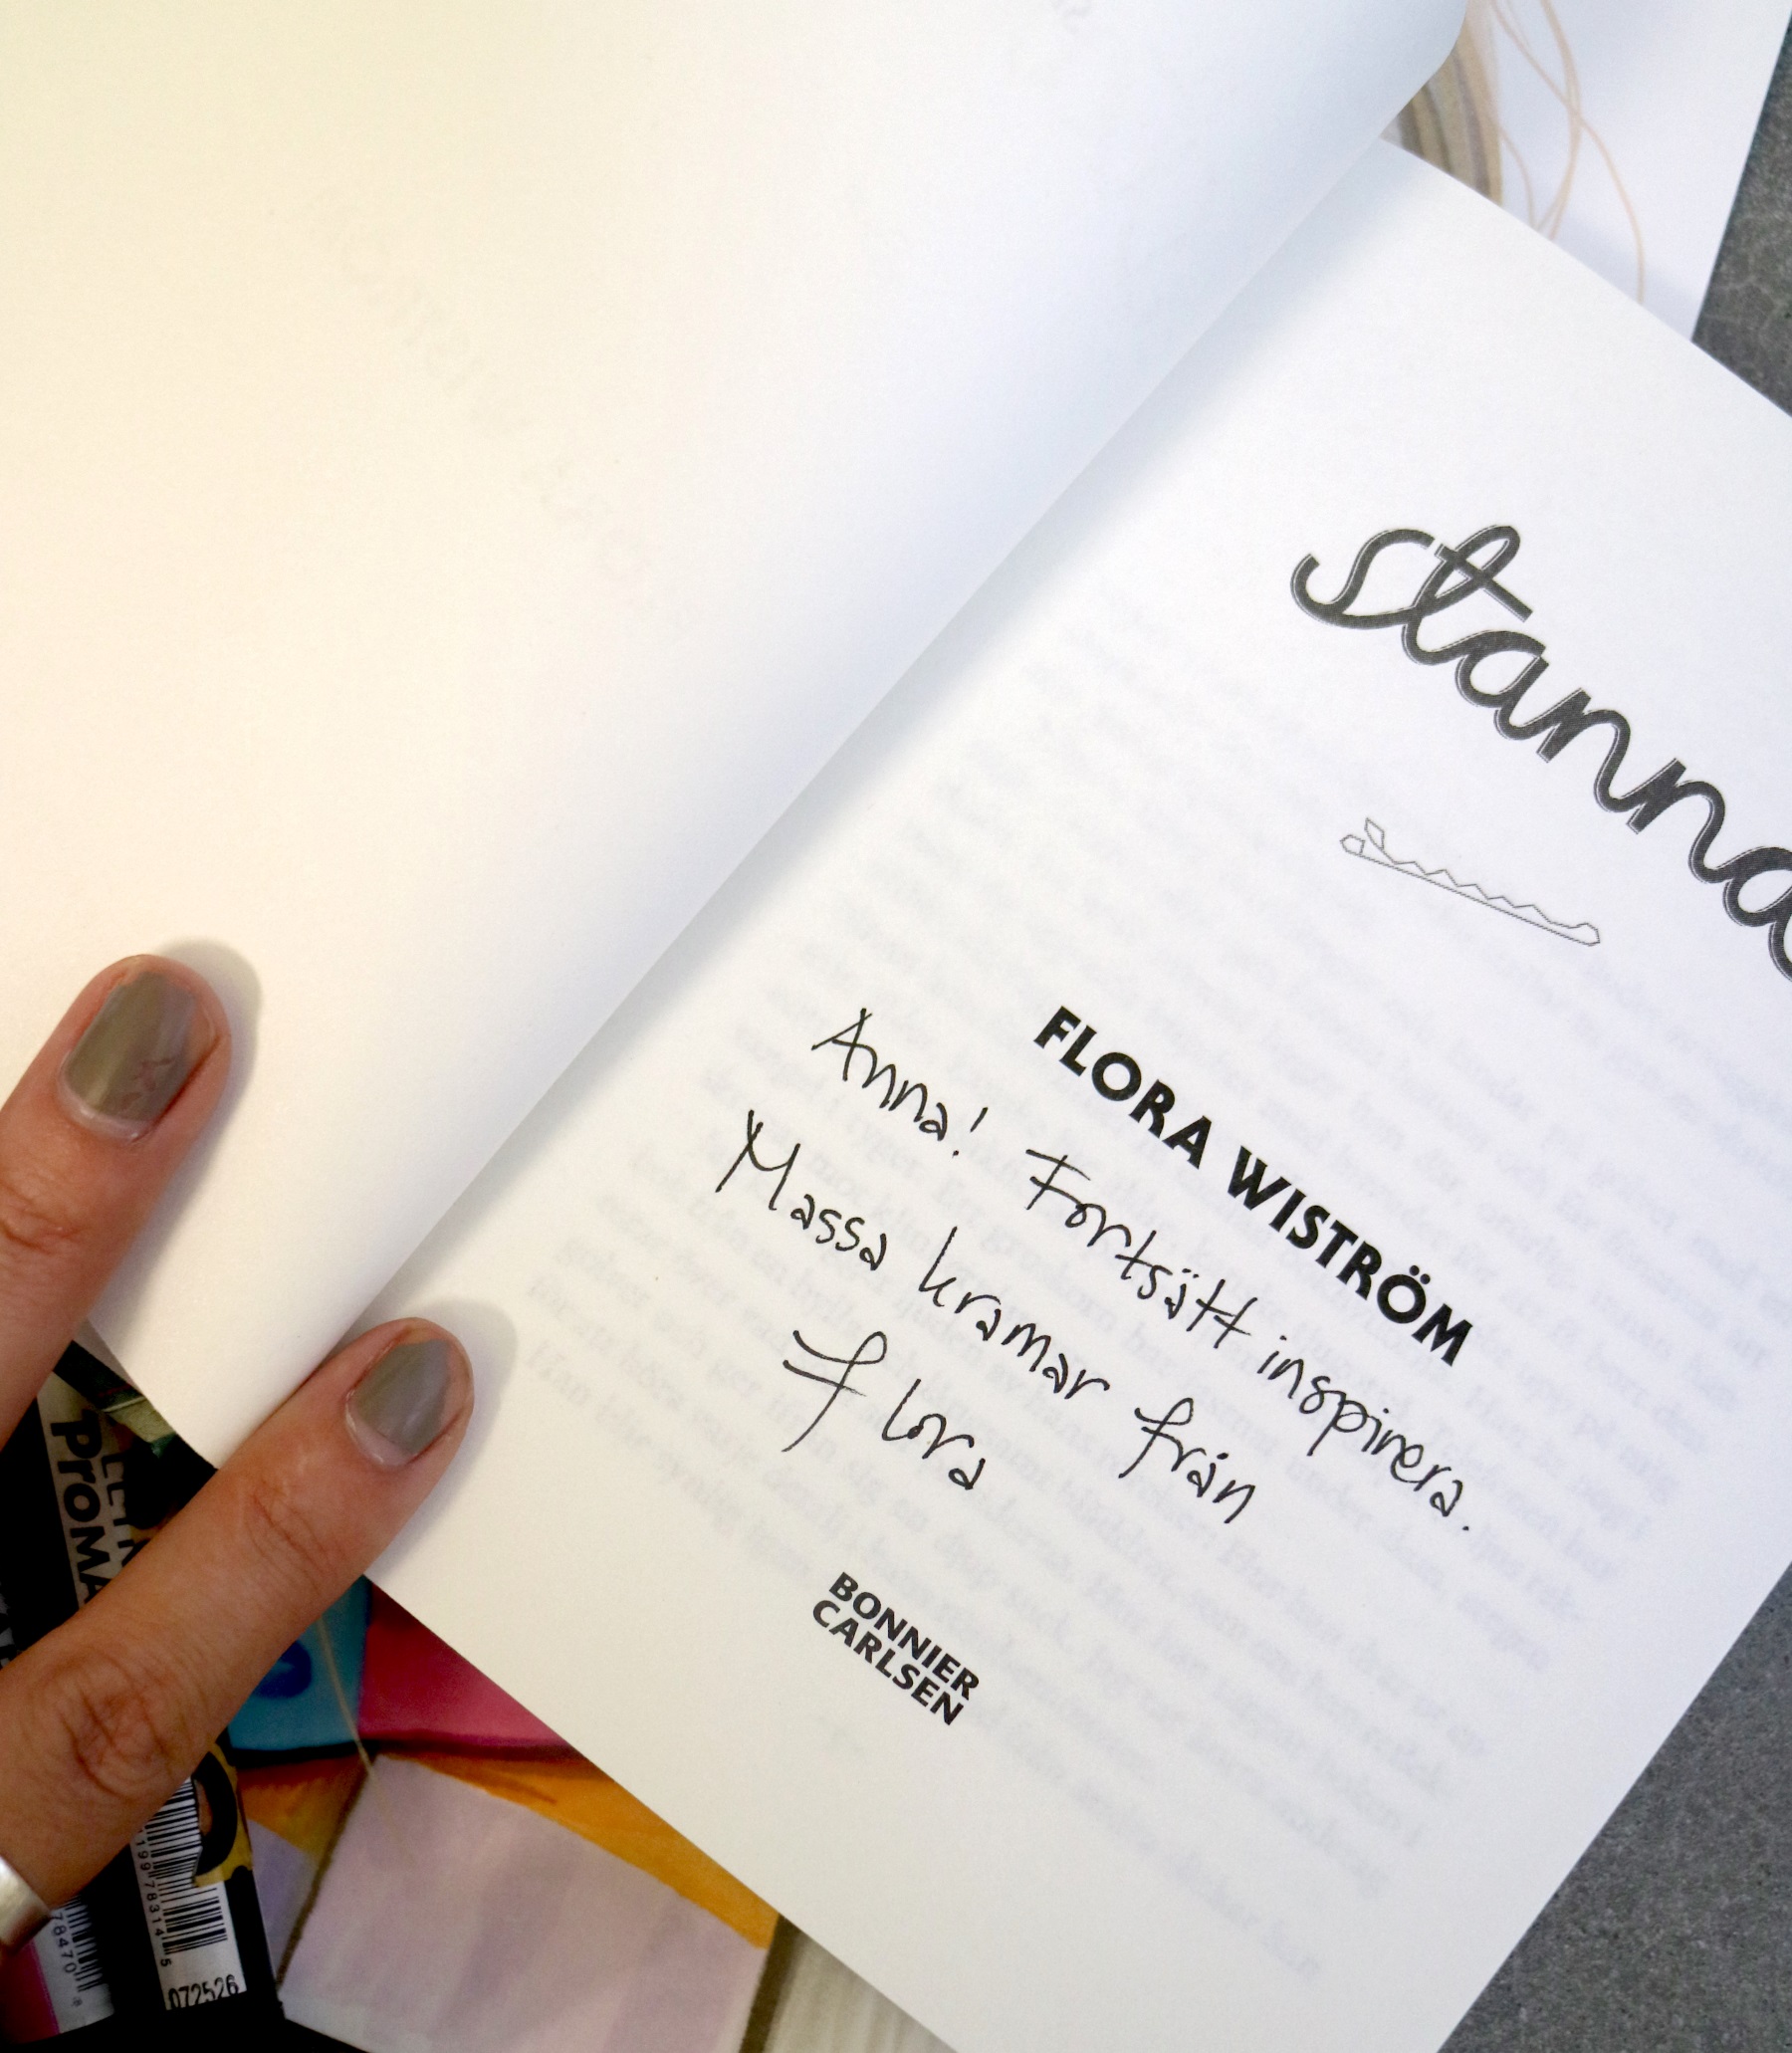 stanna
FLORA WISTRÖM
Anna! Fortsätt inspirera.
Massa kramar från
Flora
BONNIER
CARLSEN
072526